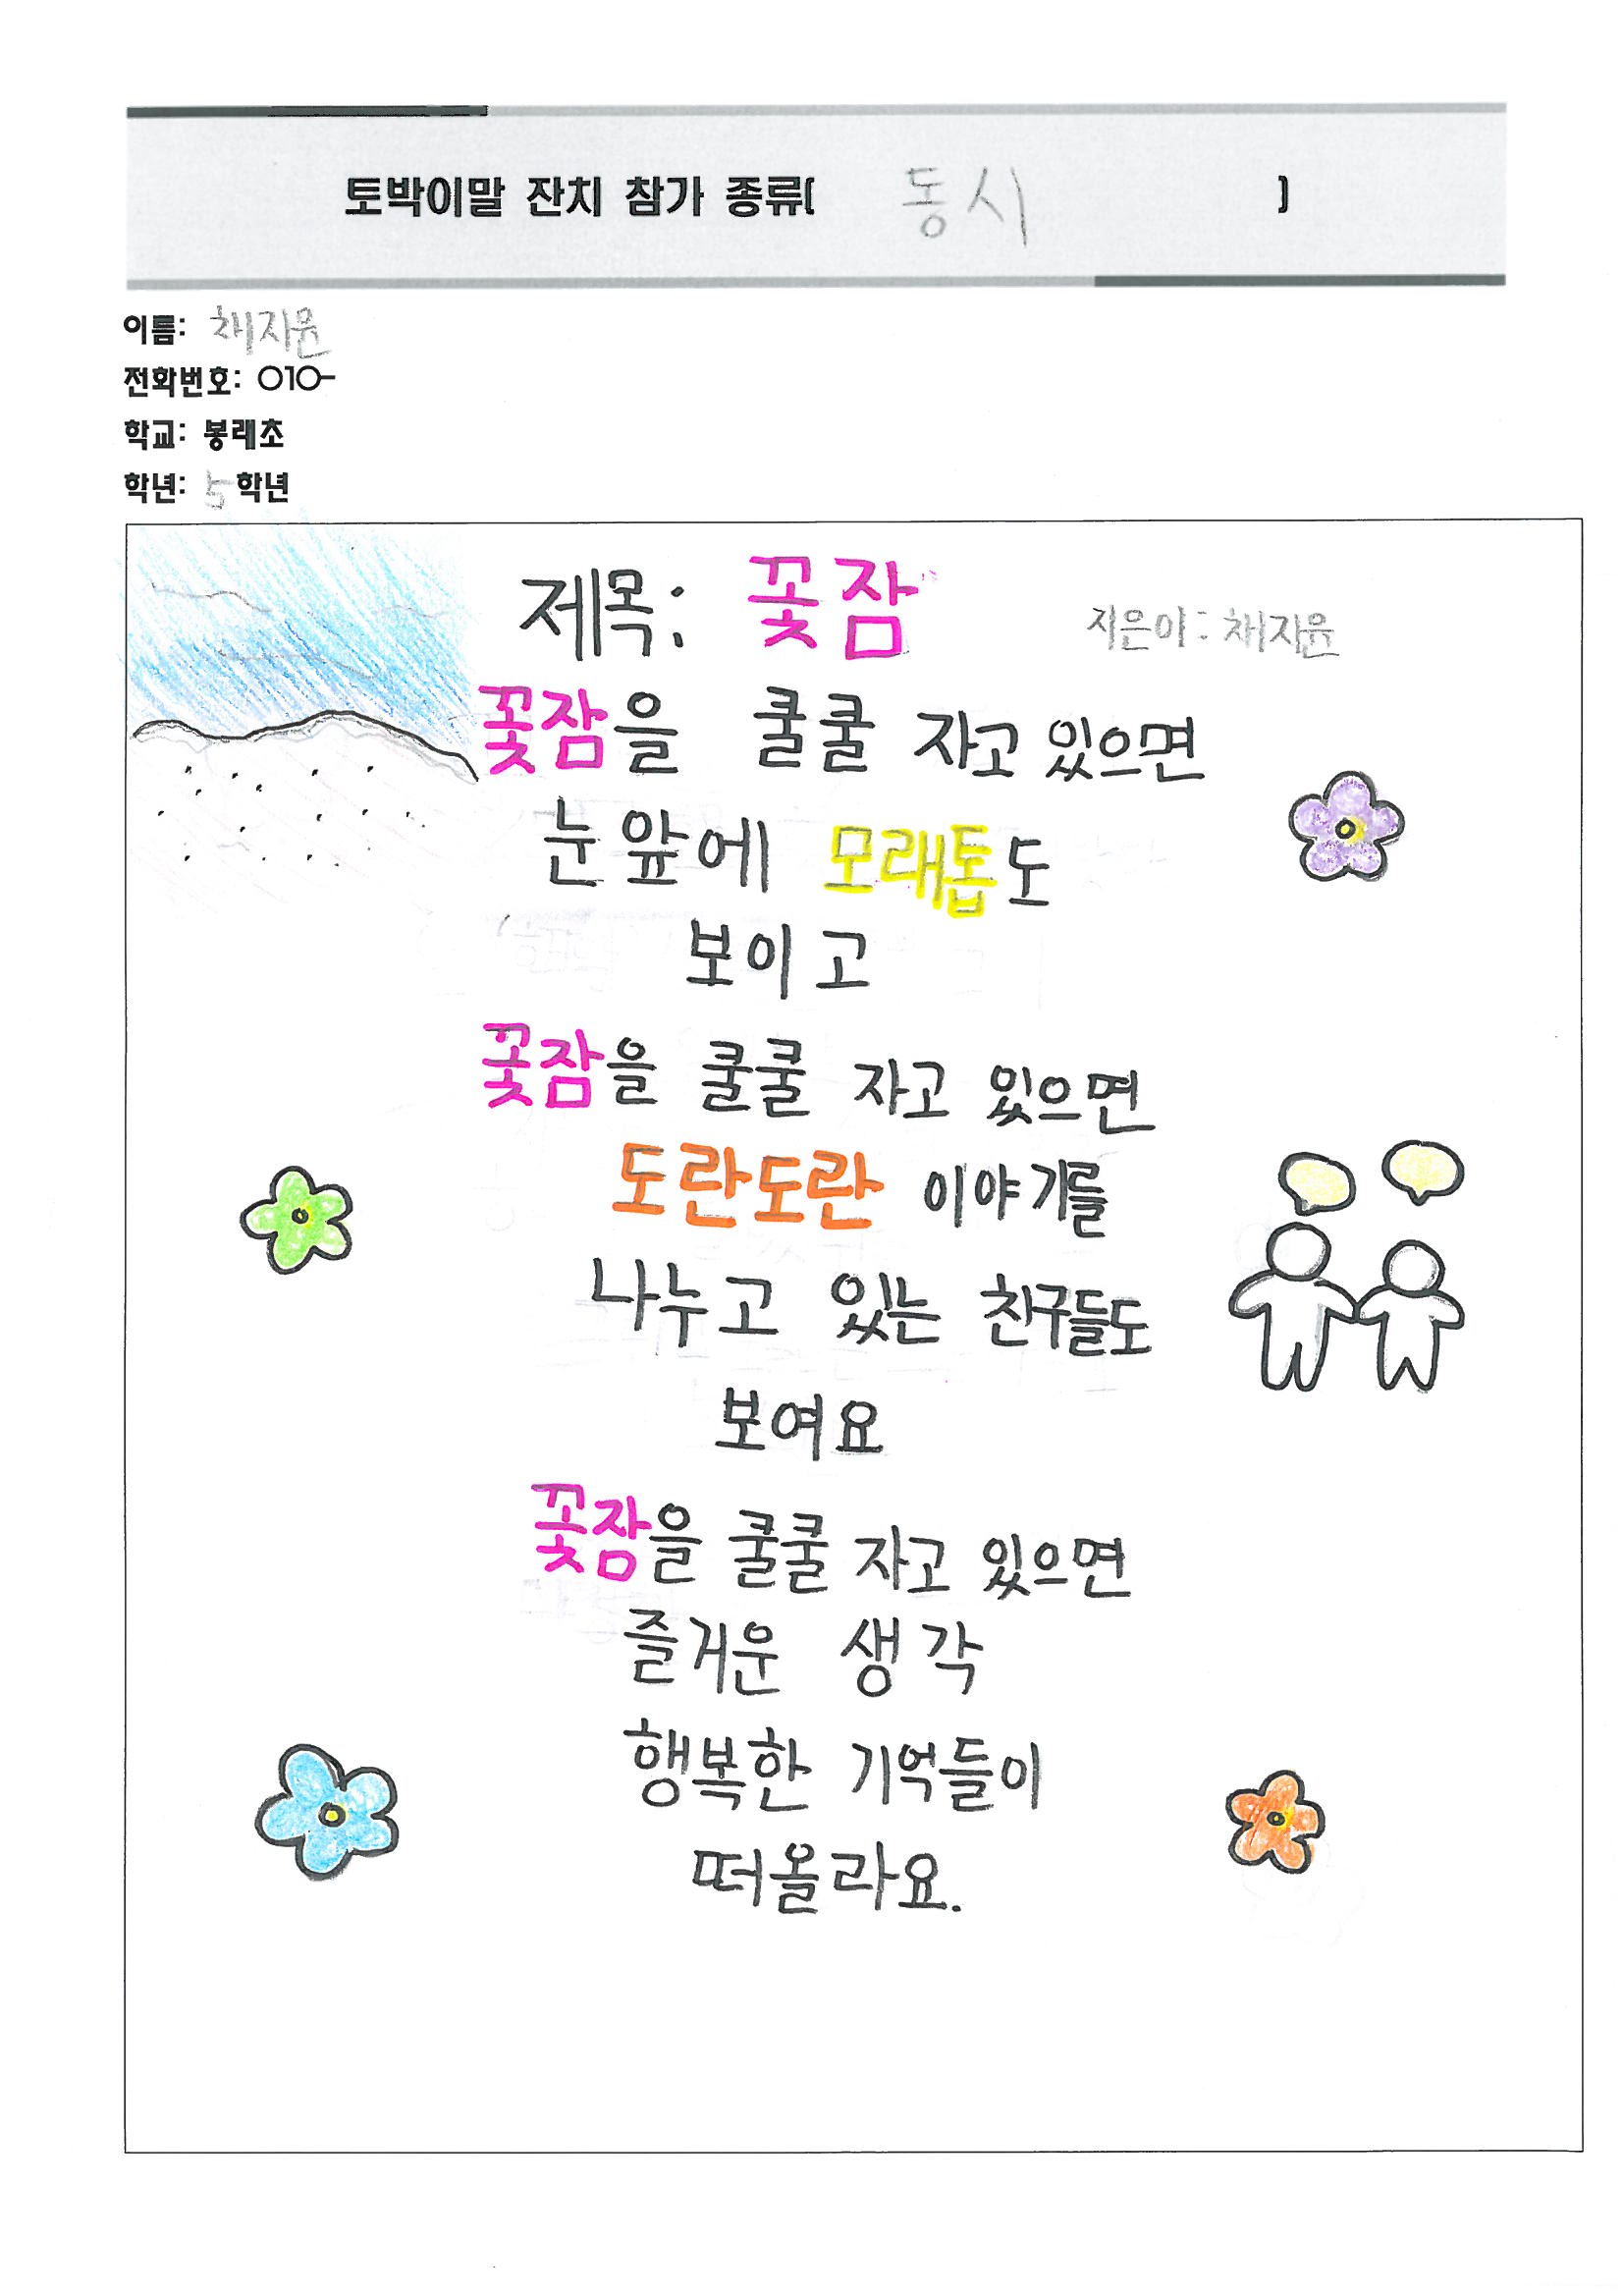 토박이말 잔치 참가 종류( 동시 )
이름: 채지윤
전화번호: 010-
학교: 봉래초
학년: 5학년
제목: 꽃잠
지은이: 채지윤
꽃잠을 쿨쿨 자고 있으면
눈앞에 모래톱도
보이고
꽃잠을 쿨쿨 자고 있으면
도란도란 이야기를
나누고 있는 친구들도
보여요
꽃잠을 쿨쿨 자고 있으면
즐거운 생각
행복한 기억들이
떠올라요.